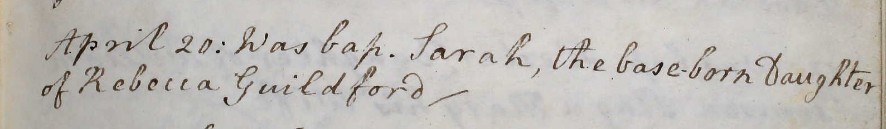 April 20: Was bap. Sarah, the base-born Daughter
of Rebecca Guildford